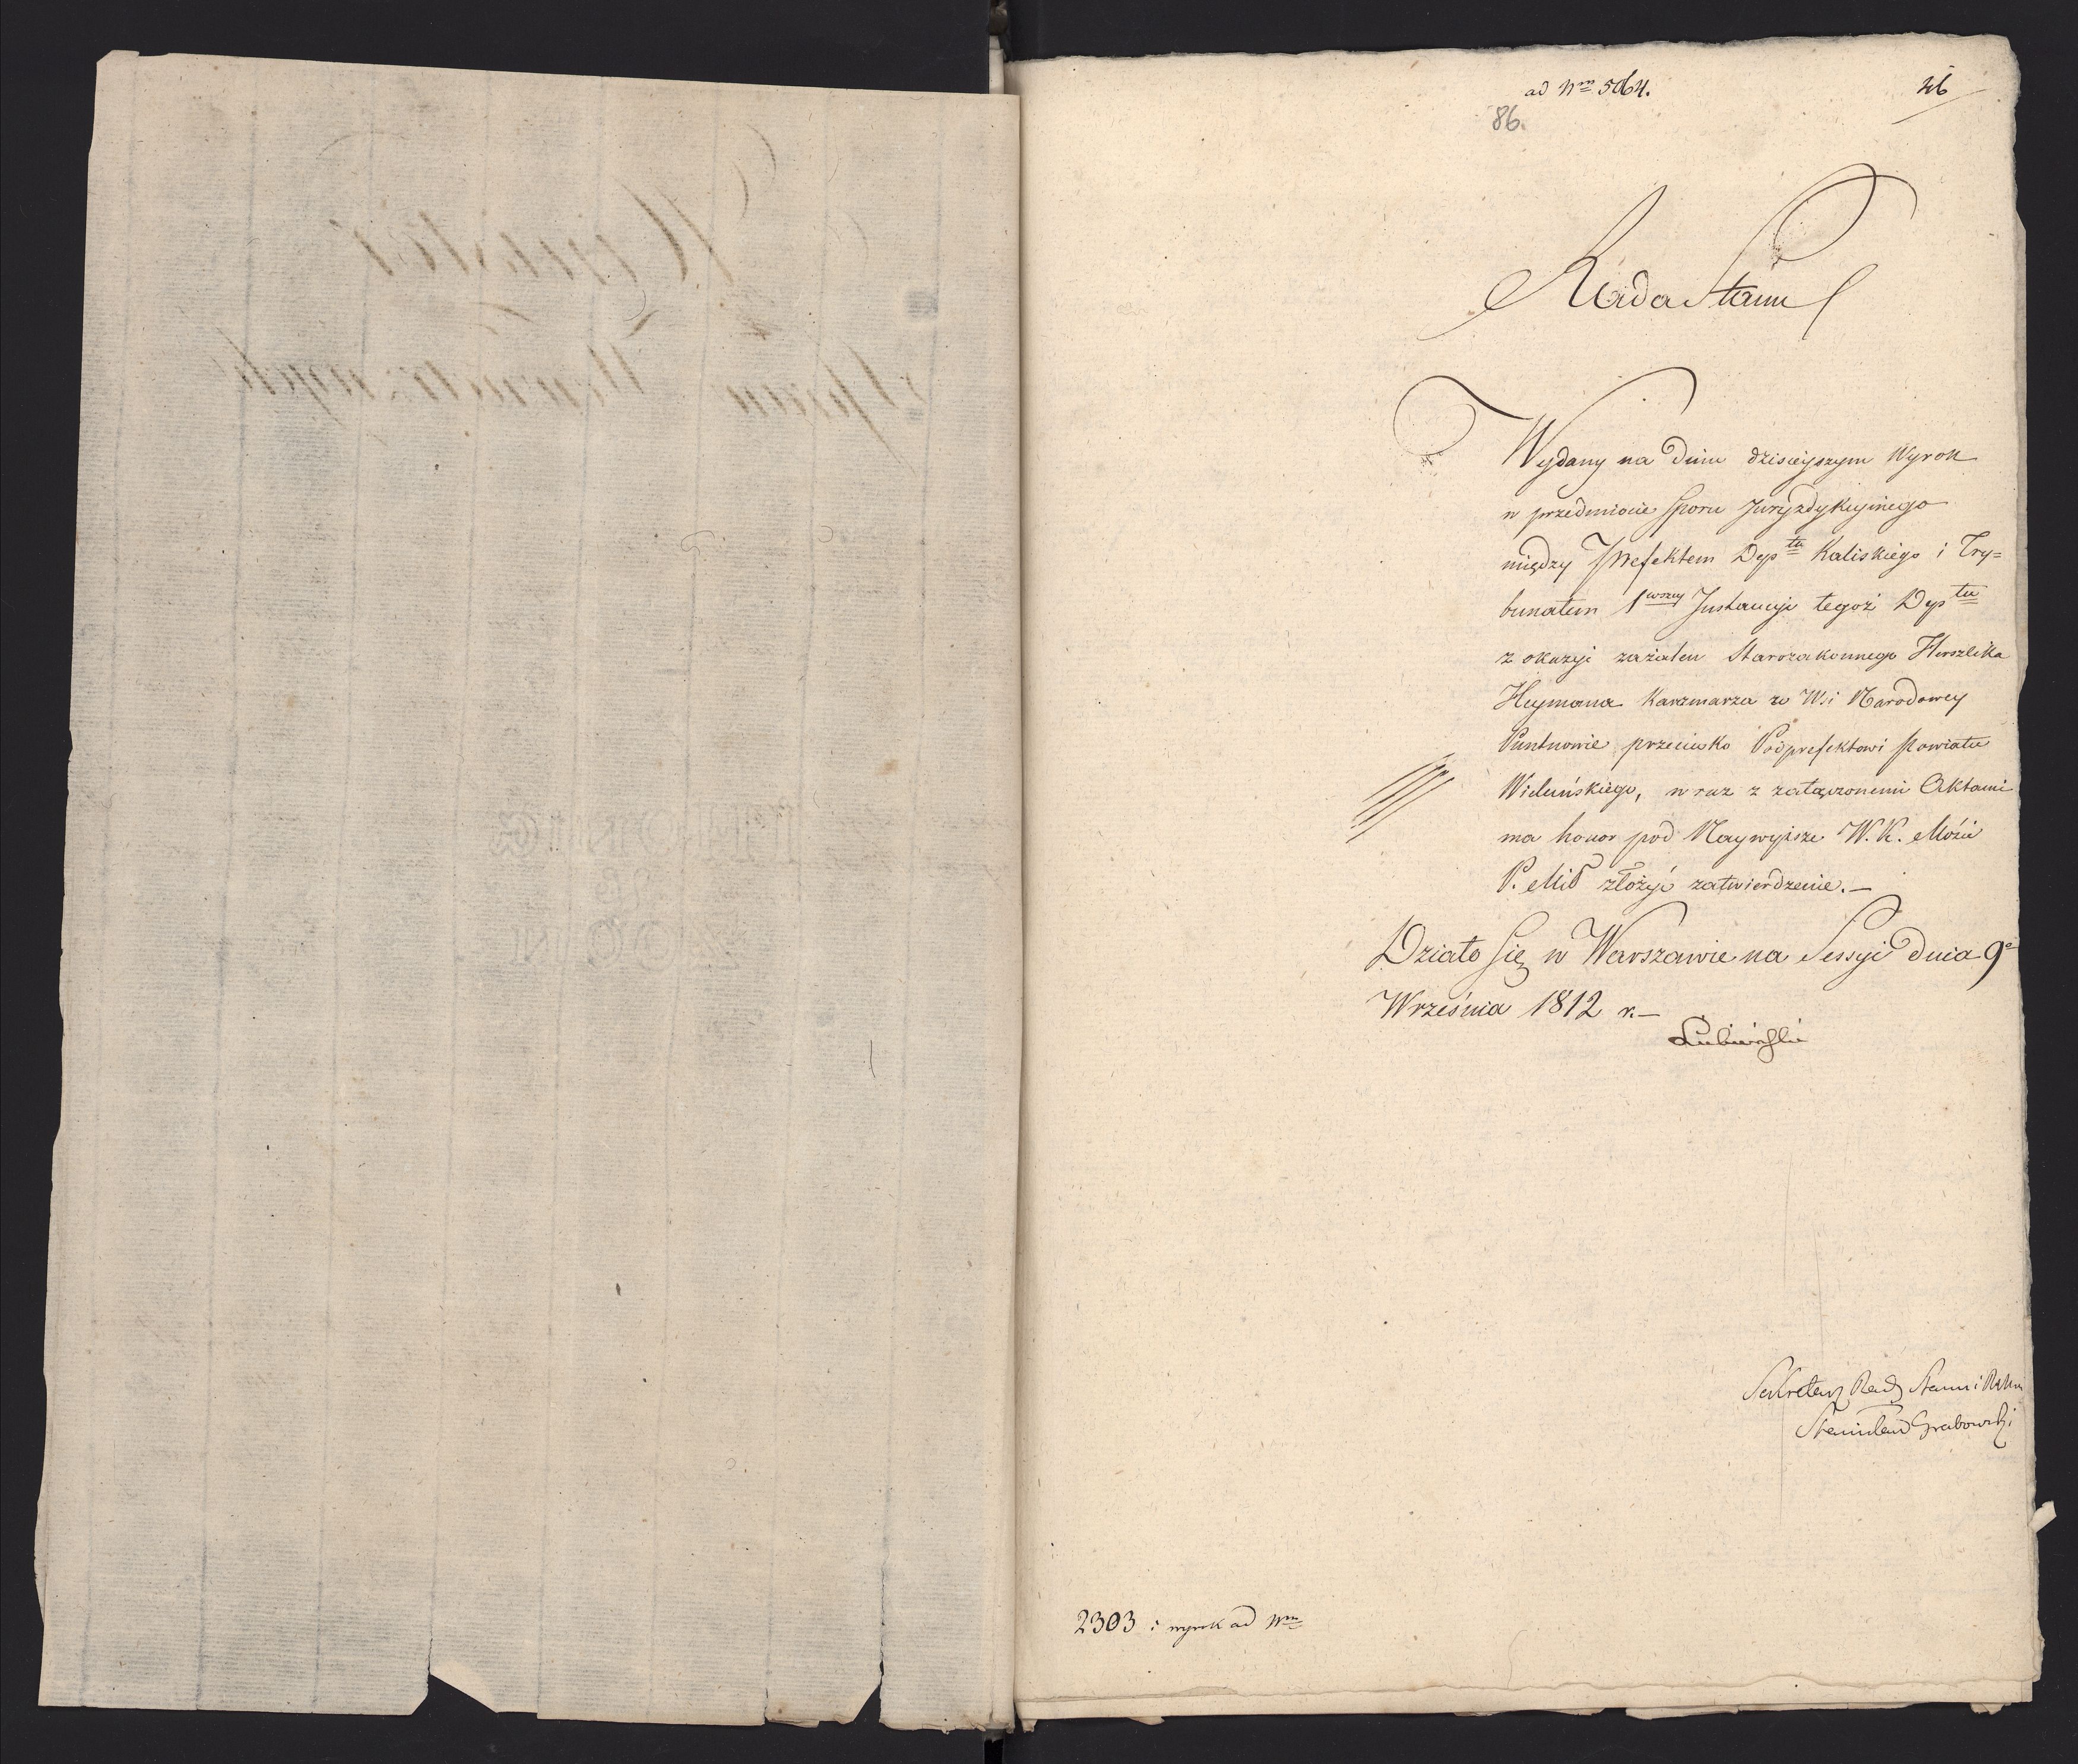 ad Nm 564.
46
86.
Rada Stanu
Wydany na dniu dzisieyszym Wyrok
w przedmiocie Sporu Juryzdykcyinego
między Prefektem Deptu Kaliskiego i Try=
bunałem 1wszey Instancyi tegoż Deptu
z okazyi zażaleń Starozakonnego Herszlika
Heymana Karzmarza w Wsi Narodowey
przeciwko Podprefektowi Powiatu
Wieluńskiego, wraz z załączonemi Aktami
ma honor pod Naywyższe W. K. Mości
P. Mił złożyć zatwierdzenie.—
Działo Się w Warszawie na Sessyi dnia 9o
Września 1812 r.—
Lubieński
Sekretarz Rady Stanu i
Stanisław Grabowski
2303 i wyrok ad Nm